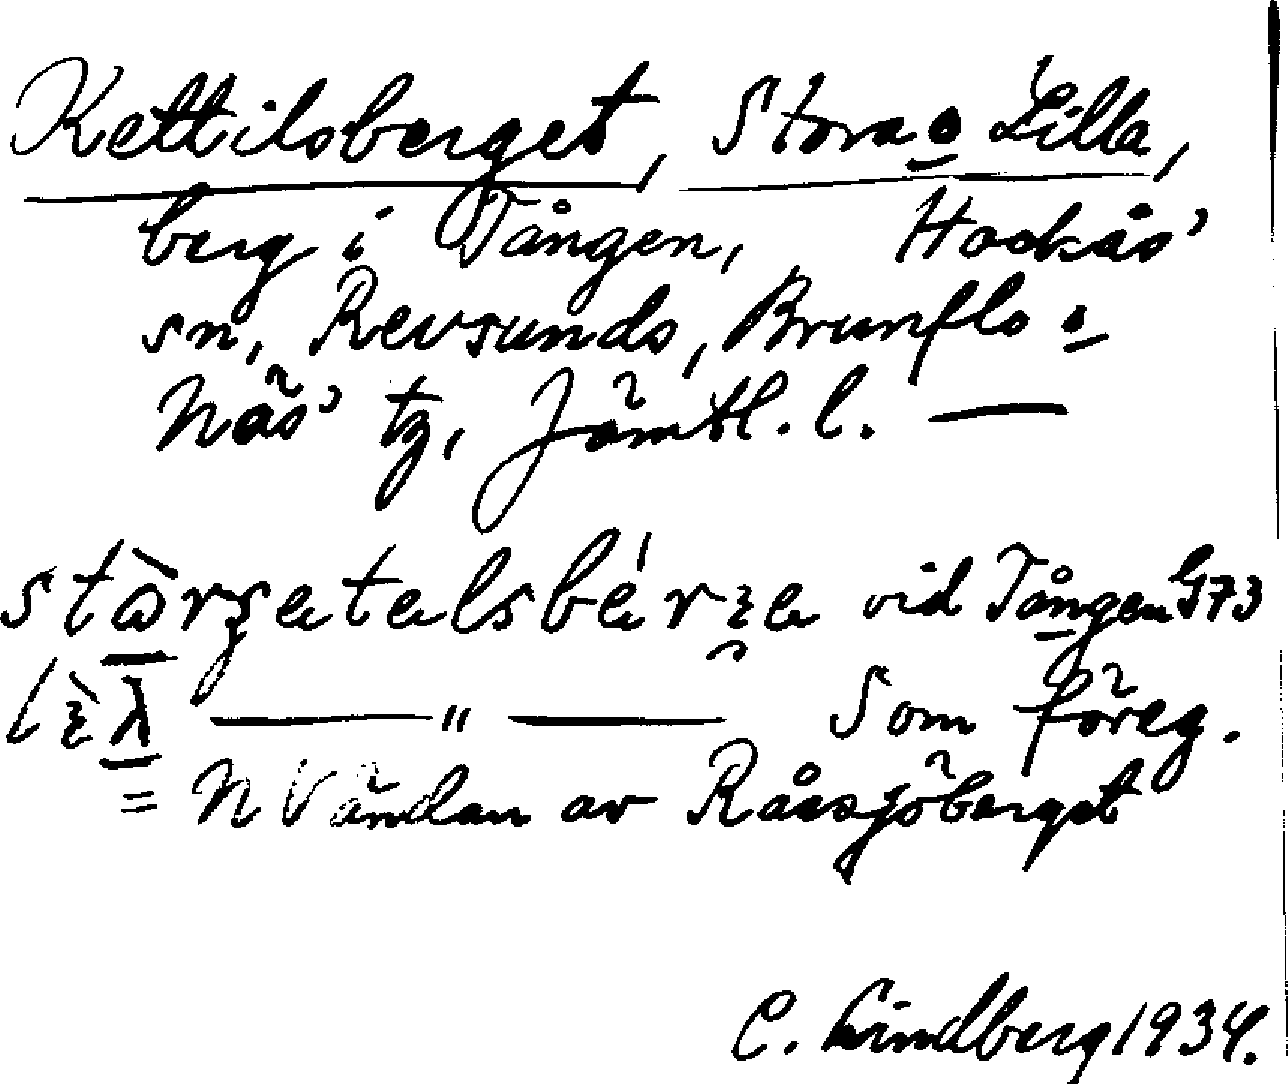 Kettilsberget, Stora o Lilla,
berg i Tången, Hackås'
sn, Revsunds, Brunflo o
Näs' tg, Jämtl. l. —
vid Tången G73
— " — Som föreg.
= N Vändan av Råssjöberget
C. Lindberg 1934.